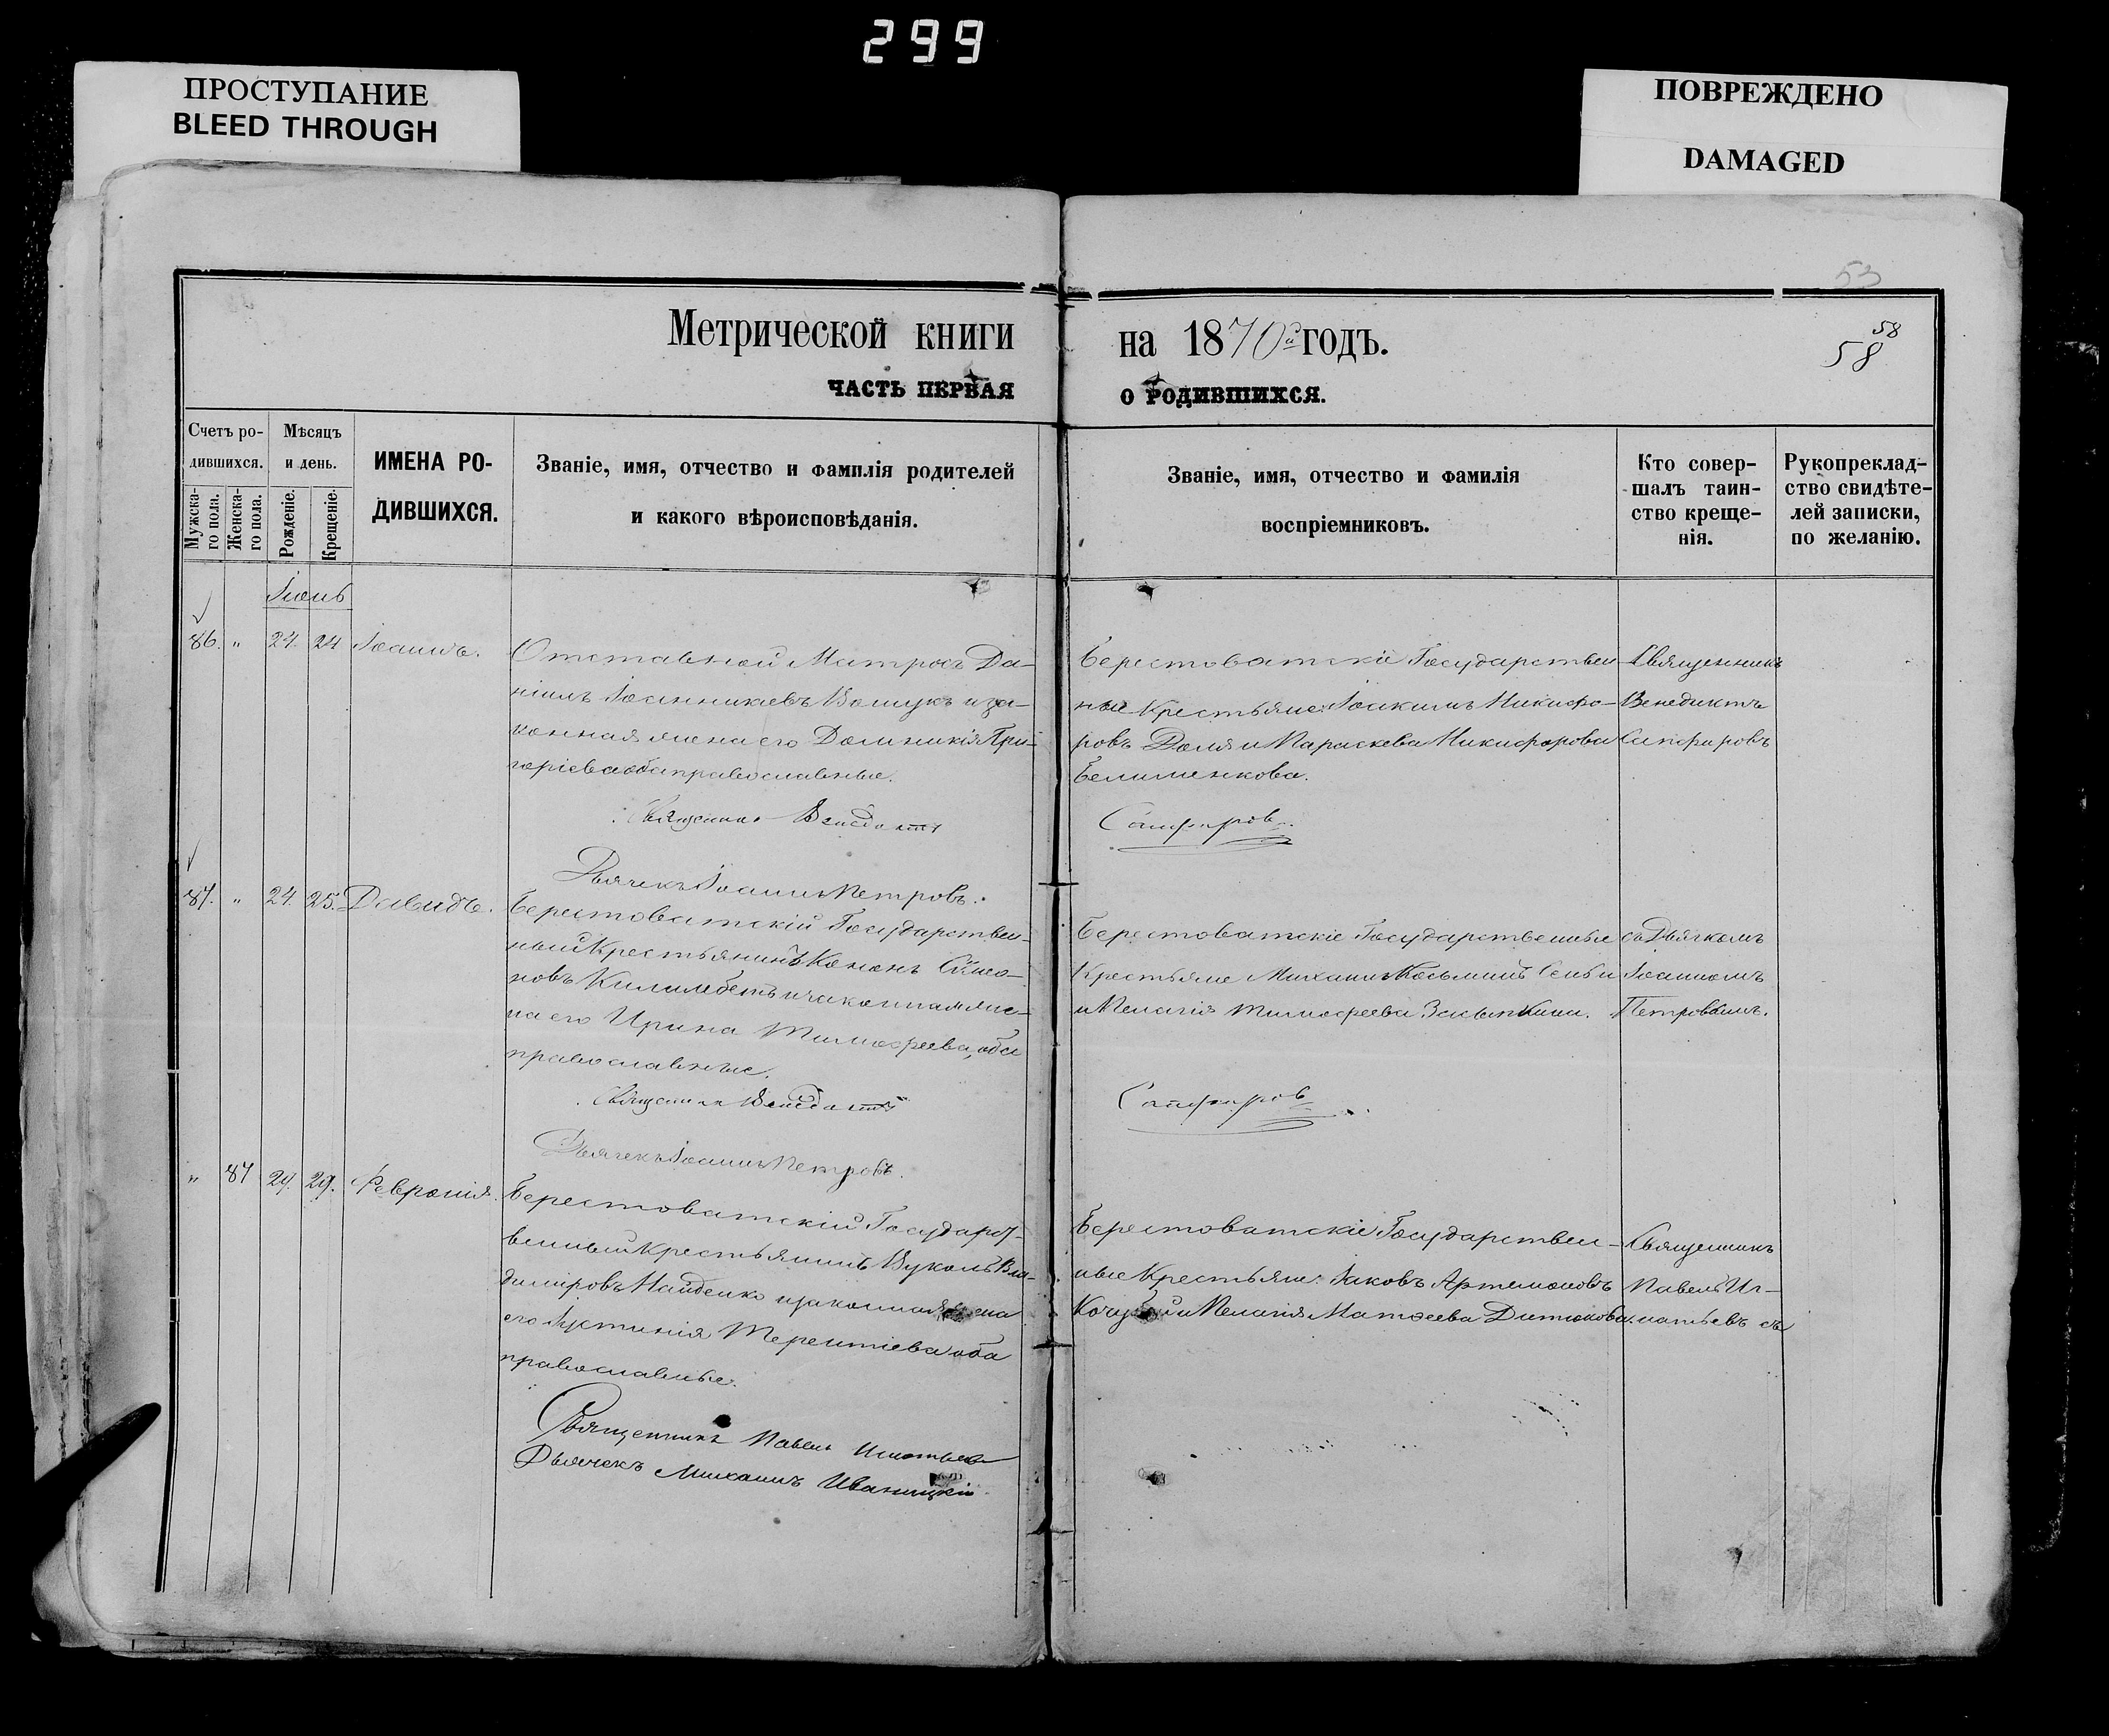 299
ПРОСТУПАНИЕ
BLEED THROUGH
ПОВРЕЖДЕНО
DAMAGED
53
58
58
Метрической книги на 1870й годъ.
ЧАСТЬ ПЕРВАЯ О РОДИВШИХСЯ.
Счетъ ро-
дившихся.
Мужска-
го пола.
Женска-
го пола.
Мѣсяцъ
и день.
Рожденіе.
Крещеніе.
ИМЕНА РО-
ДИВШИХСЯ.
Званіе, имя, отчество и фамилія родителей
и какого вѣроисповѣданія.
Званіе, имя, отчество и фамилія
воспріемниковъ.
Кто совер-
шалъ таин-
ство креще-
нія.
Рукопреклад-
ство свидѣте-
лей записки,
по желанію.
Іюнь
86. " 24. 24 Іоаннъ.
Отставной Матросъ Да-
ніилъ Іоанникіевъ и за-
конная жена его Домникія Гри-
горіева оба православные.
Священникъ Венедиктъ
Дьячекъ Іоаннъ Петровъ.
Берестоватскіе Государствен-
ные Крестьяне: Іоакимъ Никифо-
ровъ Доля и Параскева Никифорова
Сапфировъ
Священникъ
Венедиктъ
Сапфировъ
87. " 24. 25. Давидъ.
Берестоватскій Государствен-
ный Крестьянинъ Кононъ Сѵмео-
новъ и законная же-
на его Ирина Тимофеева, оба
православные.
Священникъ Венедиктъ
Дьячекъ Іоаннъ Петровъ.
Берестоватскіе Государственные
Крестьяне Михаилъ Косьминъ
и Пелагія Тимофеева
Сапфировъ
съ Дьячкомъ
Іоанномъ
Петровымъ.
" 87 29. 29. Февронія.
Берестоватскій Государст-
венный Крестьянинъ Вуколъ Вла-
диміровъ Найденко и законная жена
его Іустинія Терентіева оба
православные.
Священникъ Павелъ Игнатьевъ
Дьячекъ Михаилъ Иваницкій
Берестоватскіе Государствен-
ные Крестьяне: Іаковъ Артемоновъ
Кочубей и Пелагія Матѳеева
Священникъ
Павелъ Иг-
натьевъ съ